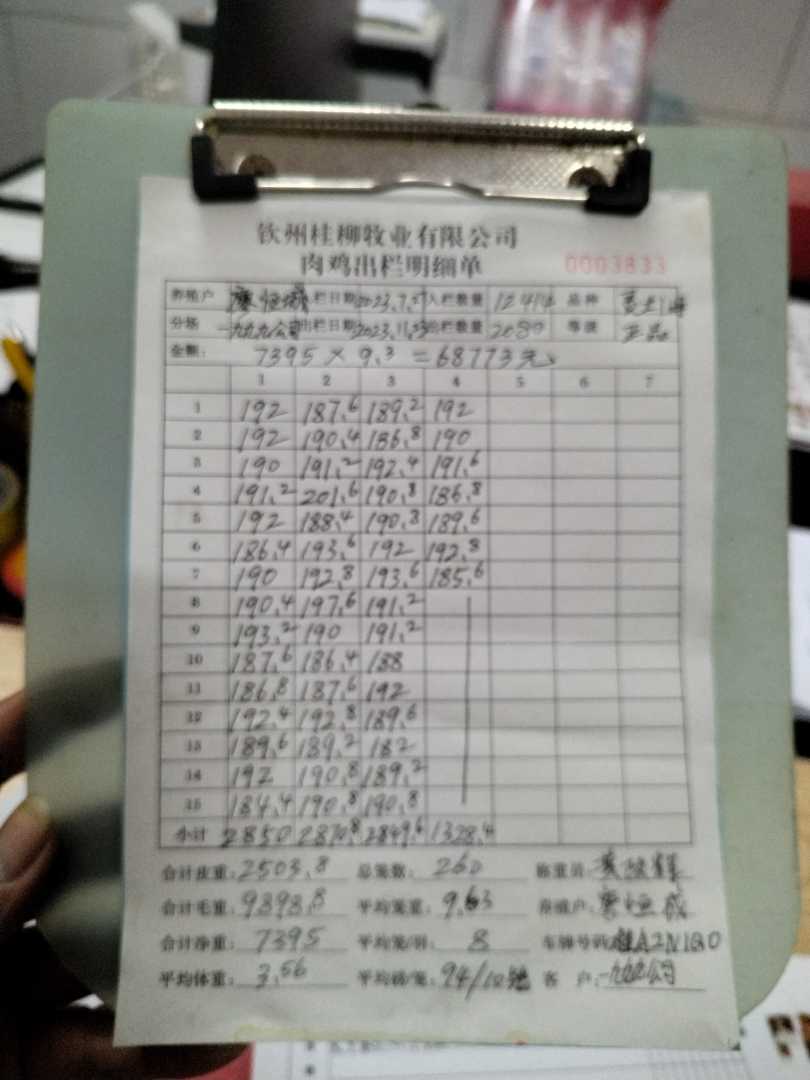 钦州桂柳牧业有限公司
肉鸡出栏明细单 0003833
养殖户 廖恒成 入栏日期 2023.7.27 入栏数量 12414 品种
分场 一九九公司 出栏日期 2023.11.23 出栏数量 2080 等级 正品
金额: 7395 × 9.3 = 68773元
1 2 3 4 5 6 7
1 192 187.6 189.2 192
2 192 190.4 186.8 190
3 190 191.2 192.4 191.6
4 191.2 201.6 190.8 186.8
5 192 188.4 190.8 189.6
6 186.4 193.6 192 192.8
7 190 192.8 193.6 185.6
8 190.4 197.6 191.2
9 193.2 190 191.2
10 187.6 186.4 188
11 186.8 187.6 192
12 192.4 192.8 189.6
13 189.6 189.2 182
14 192 190.8 189.2
15 184.4 190.8 190.8
小计 2850 2870.8 2849.6 1328.4
合计皮重: 2503.8 总笼数: 260 称重员:
合计毛重: 9898.8 平均笼重: 9.63 养殖户: 廖恒成
合计净重: 7395 平均笼/羽: 8 车牌号码: 桂A2N1Q0
平均体重: 3.56 平均磅/笼: 94/10笼 客户: 一九九公司